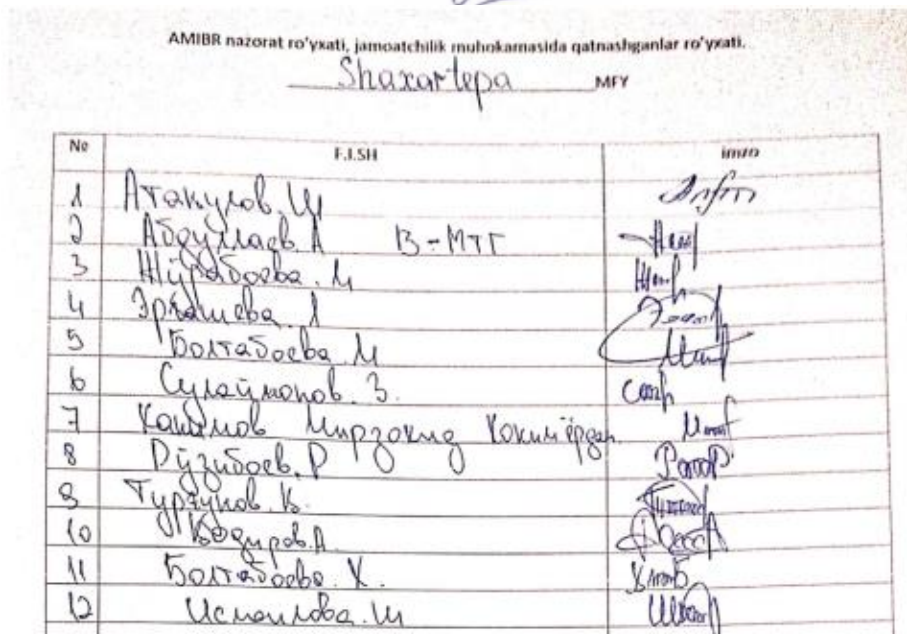 AMIBR nazorat ro'yxati, jamoatchilik muhokamasida qatnashganlar ro'yxati.
Shaxartepa MFY
No F.I.SH imzo
1 Атакулов. Ш
2 Абдуллаев. А 13-МТТ
3 Жўрабоева. М
4 Эргашева. А
5 Болтабоева М
6 Сулаймонов. З.
7 Мирзохид
8 Рўзибоев. Р
9 Турғунов. Б.
10 Кодиров. А
11 Болтабоева. Х.
12 Исмоилова. Ш